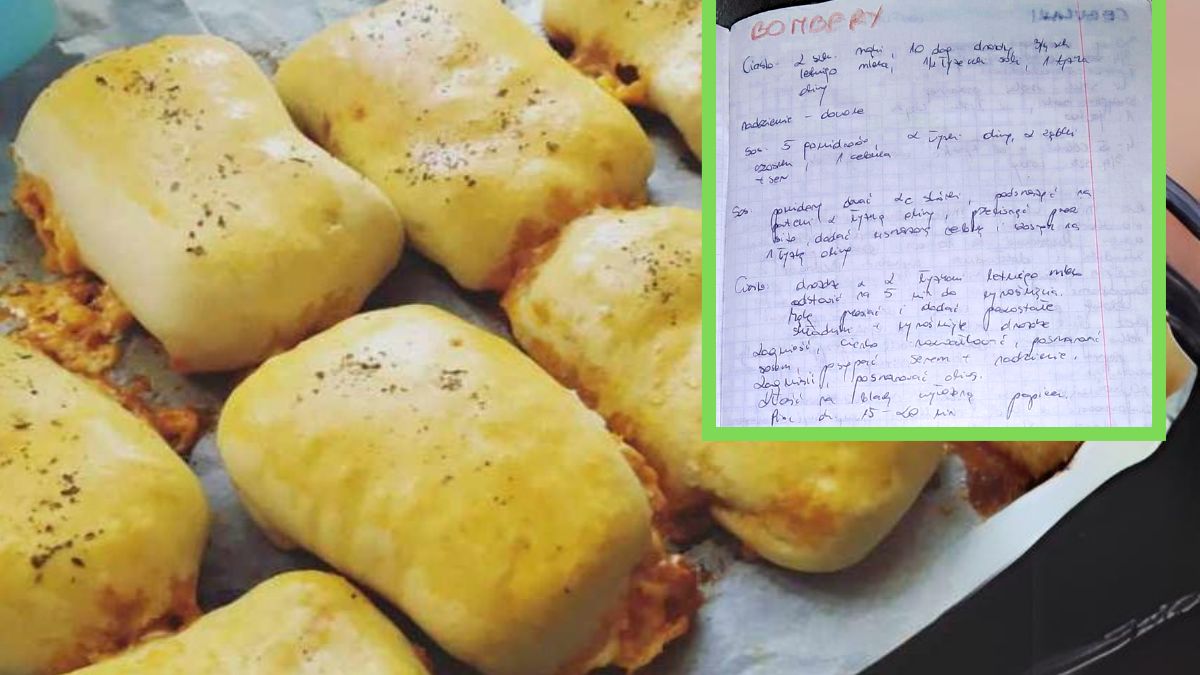 BOMBERY
Ciasto: 2 szk. mąki, 10 dag drożdży, 3/4 szk
letniego mleka, 1/2 łyżeczki soli, 1 łyżka
oliwy
nadzienie - dowolne
Sos: 5 pomidorów, 2 łyżki oliwy, 2 ząbki
czosnku, 1 cebula
+ ser
Sos: pomidory obrać ze skórki, podsmażyć na
patelni z łyżką oliwy, przecisnąć przez
sito, dodać usmażoną cebulę i czosnek na
1 łyżce oliwy
Ciasto: drożdże z 2 łyżkami letniego mleka
odstawić na 5 min do wyrośnięcia.
Mąkę przesiać i dodać pozostałe
składniki + wyrośnięte drożdże
Zagnieść, ciasto rozwałkować, posmarować
sosem, posypać serem + nadzienie.
Zagnieść, posmarować oliwą.
Złożyć na blachę wyłożoną papierem.
Piec ok. 15-20 min